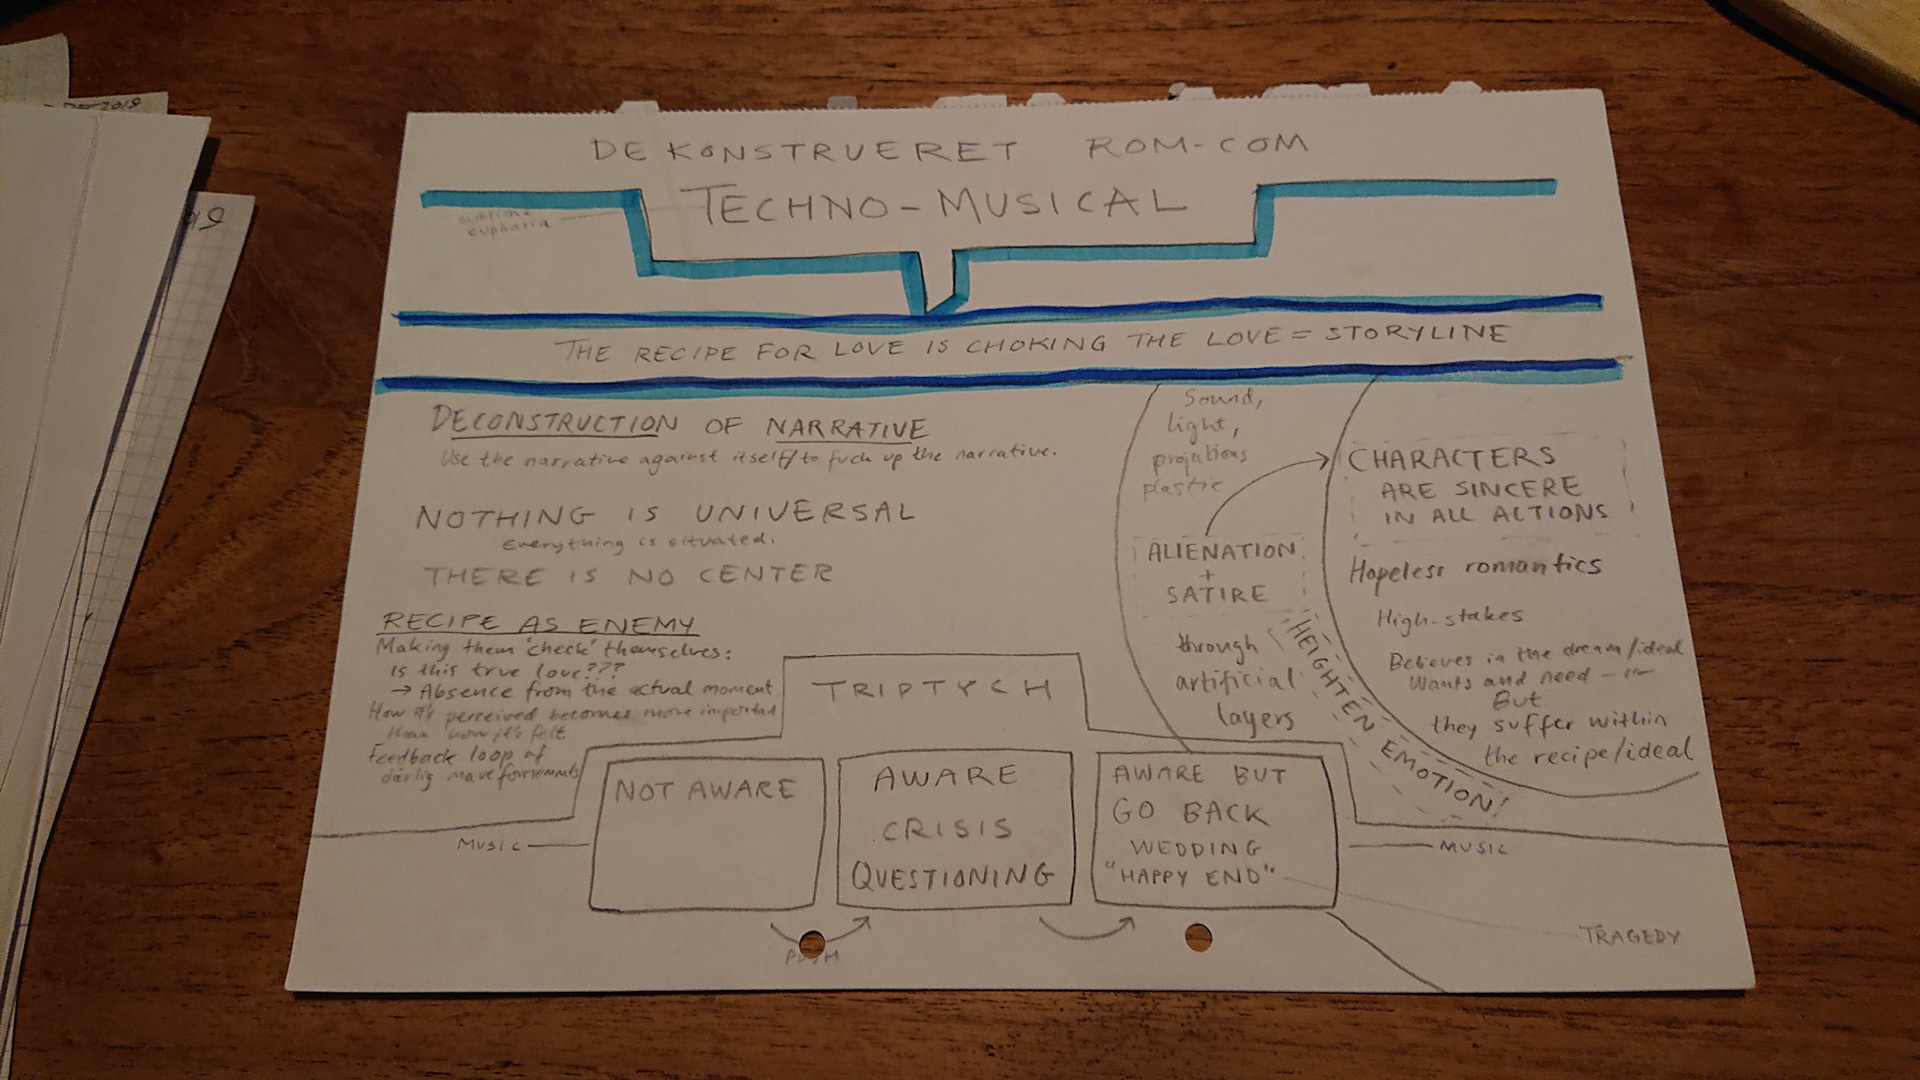 DEKONSTRUERET ROM-COM
TECHNO-MUSICAL
sublime
euphoria
THE RECIPE FOR LOVE IS CHOKING THE LOVE = STORYLINE
DECONSTRUCTION OF NARRATIVE
Use the narrative against itself/to fuck up the narrative.
NOTHING IS UNIVERSAL
Everything is situated.
THERE IS NO CENTER
RECIPE AS ENEMY
Making them 'check' themselves:
Is this true love???
→ Absence from the actual moment
How it's perceived becomes more important
than how it's felt
Feedback loop of
dårlig mavefornemmelse
Sound,
light,
projections
plastic
ALIENATION
+
SATIRE
through
artificial
layers
HEIGHTEN EMOTION!
CHARACTERS
ARE SINCERE
IN ALL ACTIONS
Hopeless romantics
High-stakes
Believes in the dream/ideal
Wants and need
But
they suffer within
the recipe/ideal
TRIPTYCH
NOT AWARE
AWARE
CRISIS
QUESTIONING
AWARE BUT
GO BACK
WEDDING
"HAPPY END"
MUSIC
MUSIC
PUSH
TRAGEDY
2019